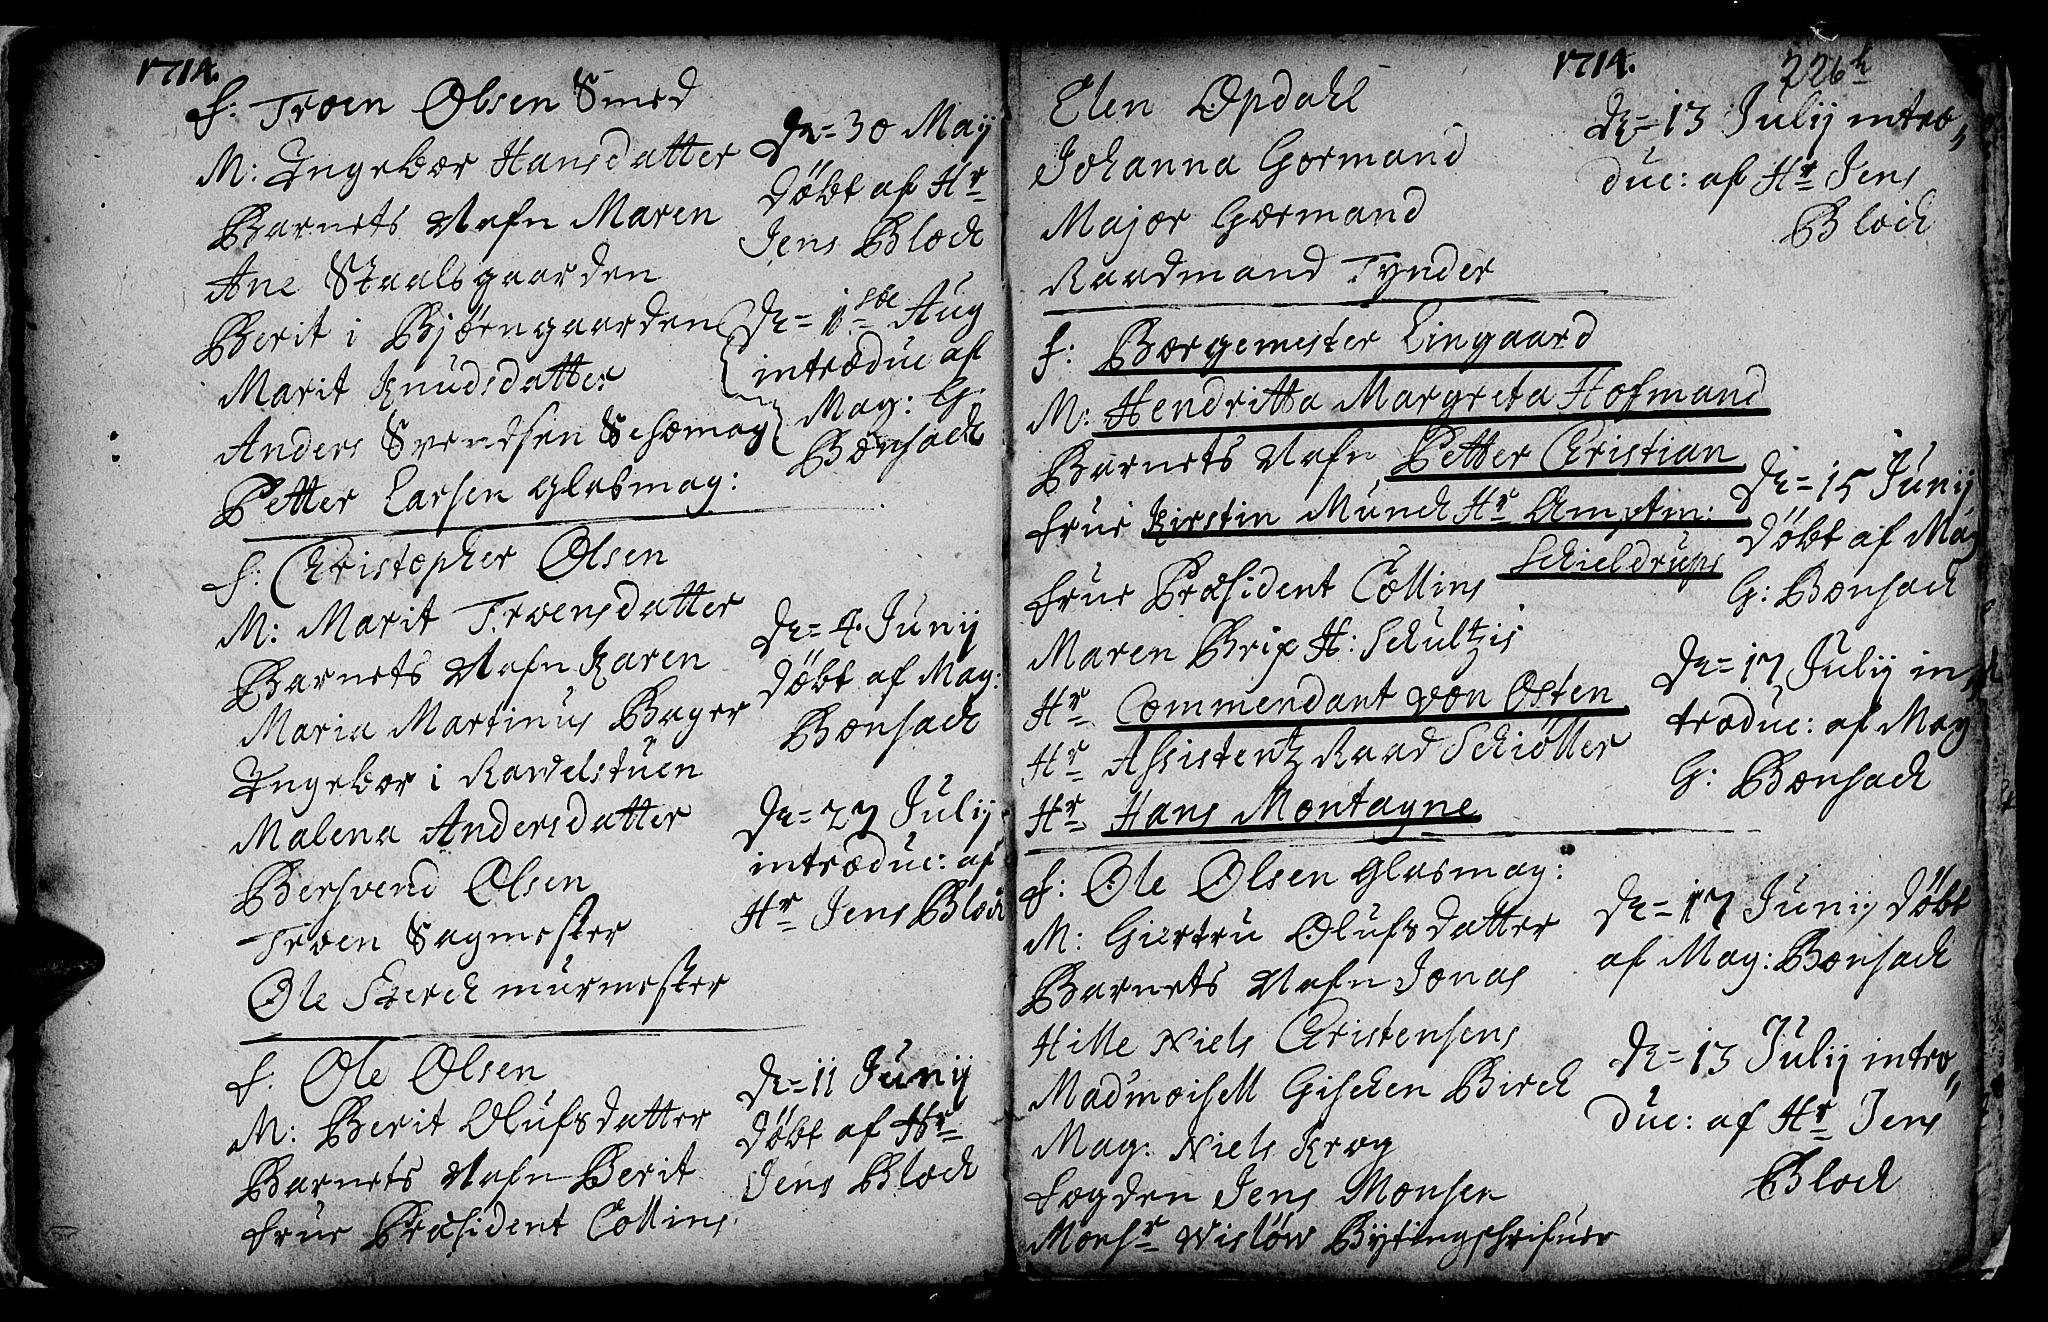 1714.
F: Troen Olsen Smed
M: Ingebor Hansdatter
Barnets Nafn Maren
Ane Staalsgaarden
Berit i Bjørngaarden
Marit Knudsdatter
Anders Svendsen Schomag
Petter Larsen glasmag:
Dr= 30 Maij
Døbt af Hr
Jens Block
Dr= 1ste Aug
introduc af
Mag: G.
Bonsack
F: Christopher Olsen
M: Marit Troensdatter
Barnets Nafn Karen
Maria Martinus Bager
Ingebor i Rawelstuen
Malena Andersdatter
Bersvend Olsen
Troen Sagmester
Ole Sterck murmester
Dr= 4. Junij
Døbt af Mag:
Bonsack
Dr= 27 Julij
introduc: af
Hr Jens Block
F: Ole Olsen
M: Berit Olufsdatter
Barnets Nafn Berit
Frue Præsident Collins
Dr= 11 Junij
Døbt af Hr
Jens Block
1714.
226
Elen Opdahl
Johanna Gormand
Major Gormand
Raadmand Tynder
Dr= 13 Julij intro,,
duc: af Hr Jens
Block
F: Borgemester Lingaard
M: Hendritta Margreta Hofmand
Barnets Nafn Petter Christian
Frue Kirstin Munck Hr Amptm:
Schieldrups
Frue Præsident Collins
Maren Brix H: Schultzis
Hr Commendant von Osten
Hr Assistentz Raad Schiøller
Hr Hans Montagne
Dr= 15 Junij
Døbt af Mag
G: Bonsack
Dr= 17 Julij in
troduc: af Mag
G: Bonsack
F: Ole Olsen glasmag:
M: Giertru Olufsdatter
Barnets Nafn Jonas
Hille Niels Christensens
Madmoisell Gischen Birck
Mag: Niels Krog
Fogden Jens Monsen
Monsr Wisløw Bytingschrifuer
Dr= 17 Junij Døbt
af Mag: Bonsack
Dr= 13 Julij intro,,
duc: af Hr Jens
Block